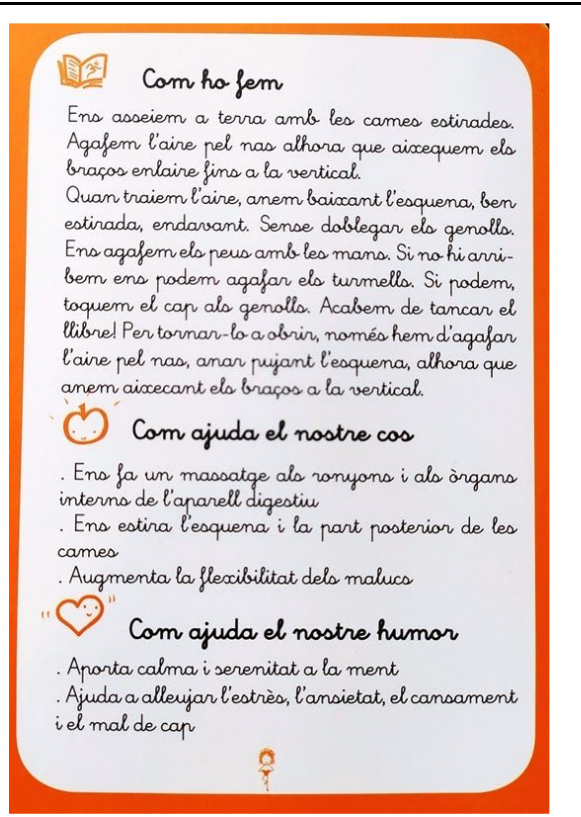 Com ho fem
Ens asseiem a terra amb les cames estirades.
Agafem l'aire pel nas alhora que aixequem els
braços enlaire fins a la vertical.
Quan traiem l'aire, anem baixant l'esquena, ben
estirada, endavant. Sense doblegar els genolls.
Ens agafem els peus amb les mans. Si no hi arri-
bem ens podem agafar els turmells. Si podem,
toquem el cap als genolls. Acabem de tancar el
llibre! Per tornar-lo a obrir, només hem d'agafar
l'aire pel nas, anar pujant l'esquena, alhora que
anem aixecant els braços a la vertical.
Com ajuda el nostre cos
. Ens fa un massatge als ronyons i als òrgans
interns de l'aparell digestiu
. Ens estira l'esquena i la part posterior de les
cames
. Augmenta la flexibilitat dels malucs
Com ajuda el nostre humor
. Aporta calma i serenitat a la ment
. Ajuda a alleujar l'estrès, l'ansietat, el cansament
i el mal de cap